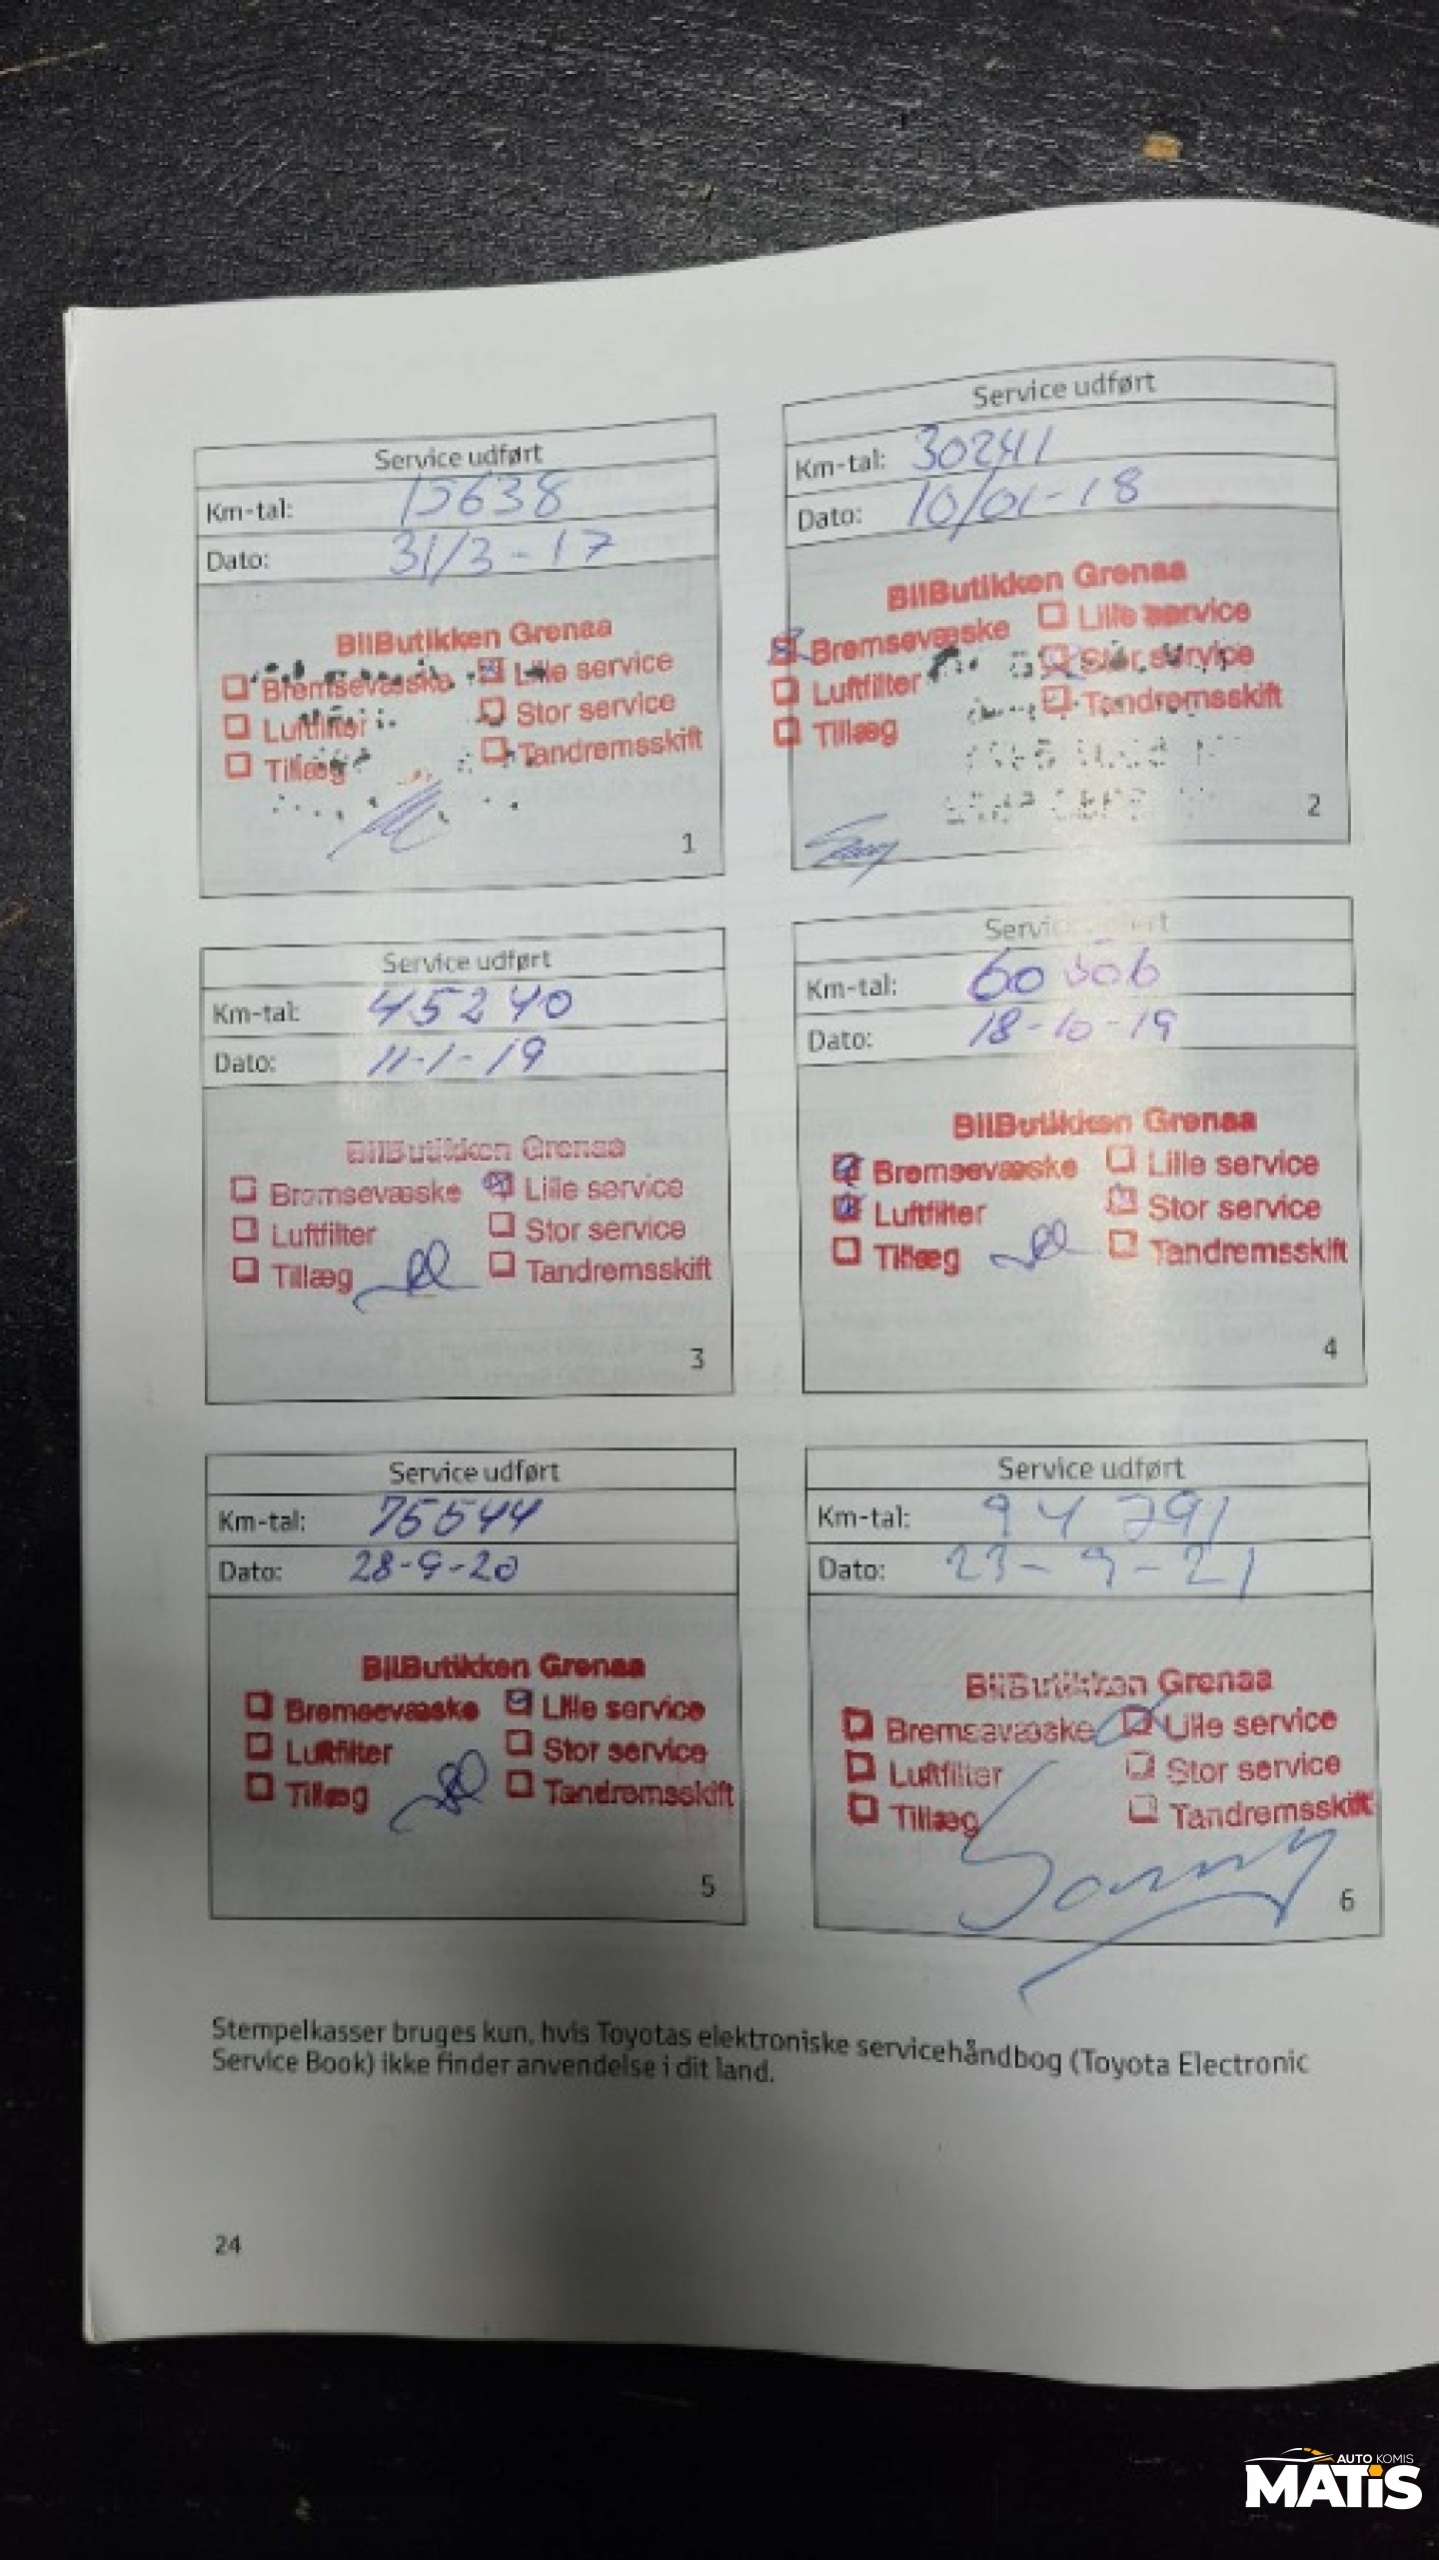 Service udført
Km-tal: 15638
Dato: 31/3-17
BilButikken Grenaa
Bremsevæske Lille service
Luftfilter Stor service
Tillæg Tandremsskift
1
Service udført
Km-tal: 30241
Dato: 10/01-18
BilButikken Grenaa
Bremsevæske Lille service
Luftfilter Stor service
Tillæg Tandremsskift
2
Service udført
Km-tal: 45240
Dato: 11-1-19
BilButikken Grenaa
Bremsevæske Lille service
Luftfilter Stor service
Tillæg Tandremsskift
3
Km-tal:
Dato: 18-10-19
BilButikken Grenaa
Bremsevæske Lille service
Luftfilter Stor service
Tillæg Tandremsskift
4
Service udført
Km-tal:
Dato: 28-9-20
BilButikken Grenaa
Bremsevæske Lille service
Luftfilter Stor service
Tillæg Tandremsskift
5
Service udført
Km-tal: 94 791
Dato: 23-9-21
BilButikken Grenaa
Bremsevæske Lille service
Luftfilter Stor service
Tillæg Tandremsskift
6
Stempelkasser bruges kun, hvis Toyotas elektroniske servicehåndbog (Toyota Electronic
Service Book) ikke finder anvendelse i dit land.
24
AUTO KOMIS
MATIS